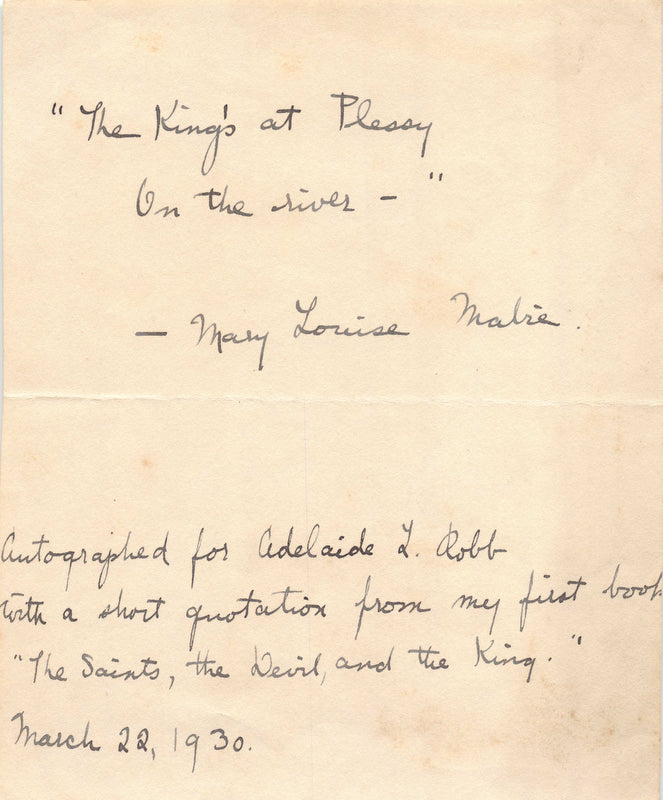 "The King's at Plessy
On the river - "
- Mary Louise Mabie.
Autographed for Adelaide L. Robb
with a short quotation from my first book
"The Saints, the Devil, and the King."
March 22, 1930.